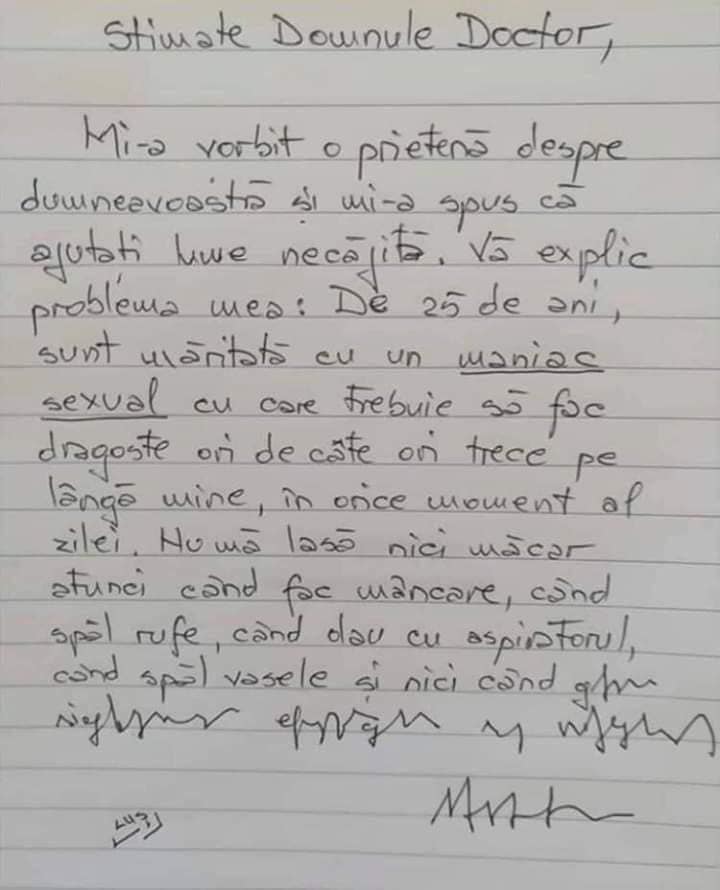 Stimate Domnule Doctor,
Mi-a vorbit o prietenă despre
dumneavoastră și mi-a spus că
ajutati lume necăjită. Vă explic
problema mea: De 25 de ani,
sunt măritată cu un maniac
sexual cu care trebuie să fac
dragoste ori de câte ori trece pe
lângă mine, în orice moment al
zilei. Nu mă lasă nici măcar
atunci când fac mâncare, când
spăl rufe, când dau cu aspiratorul,
când spăl vasele și nici când